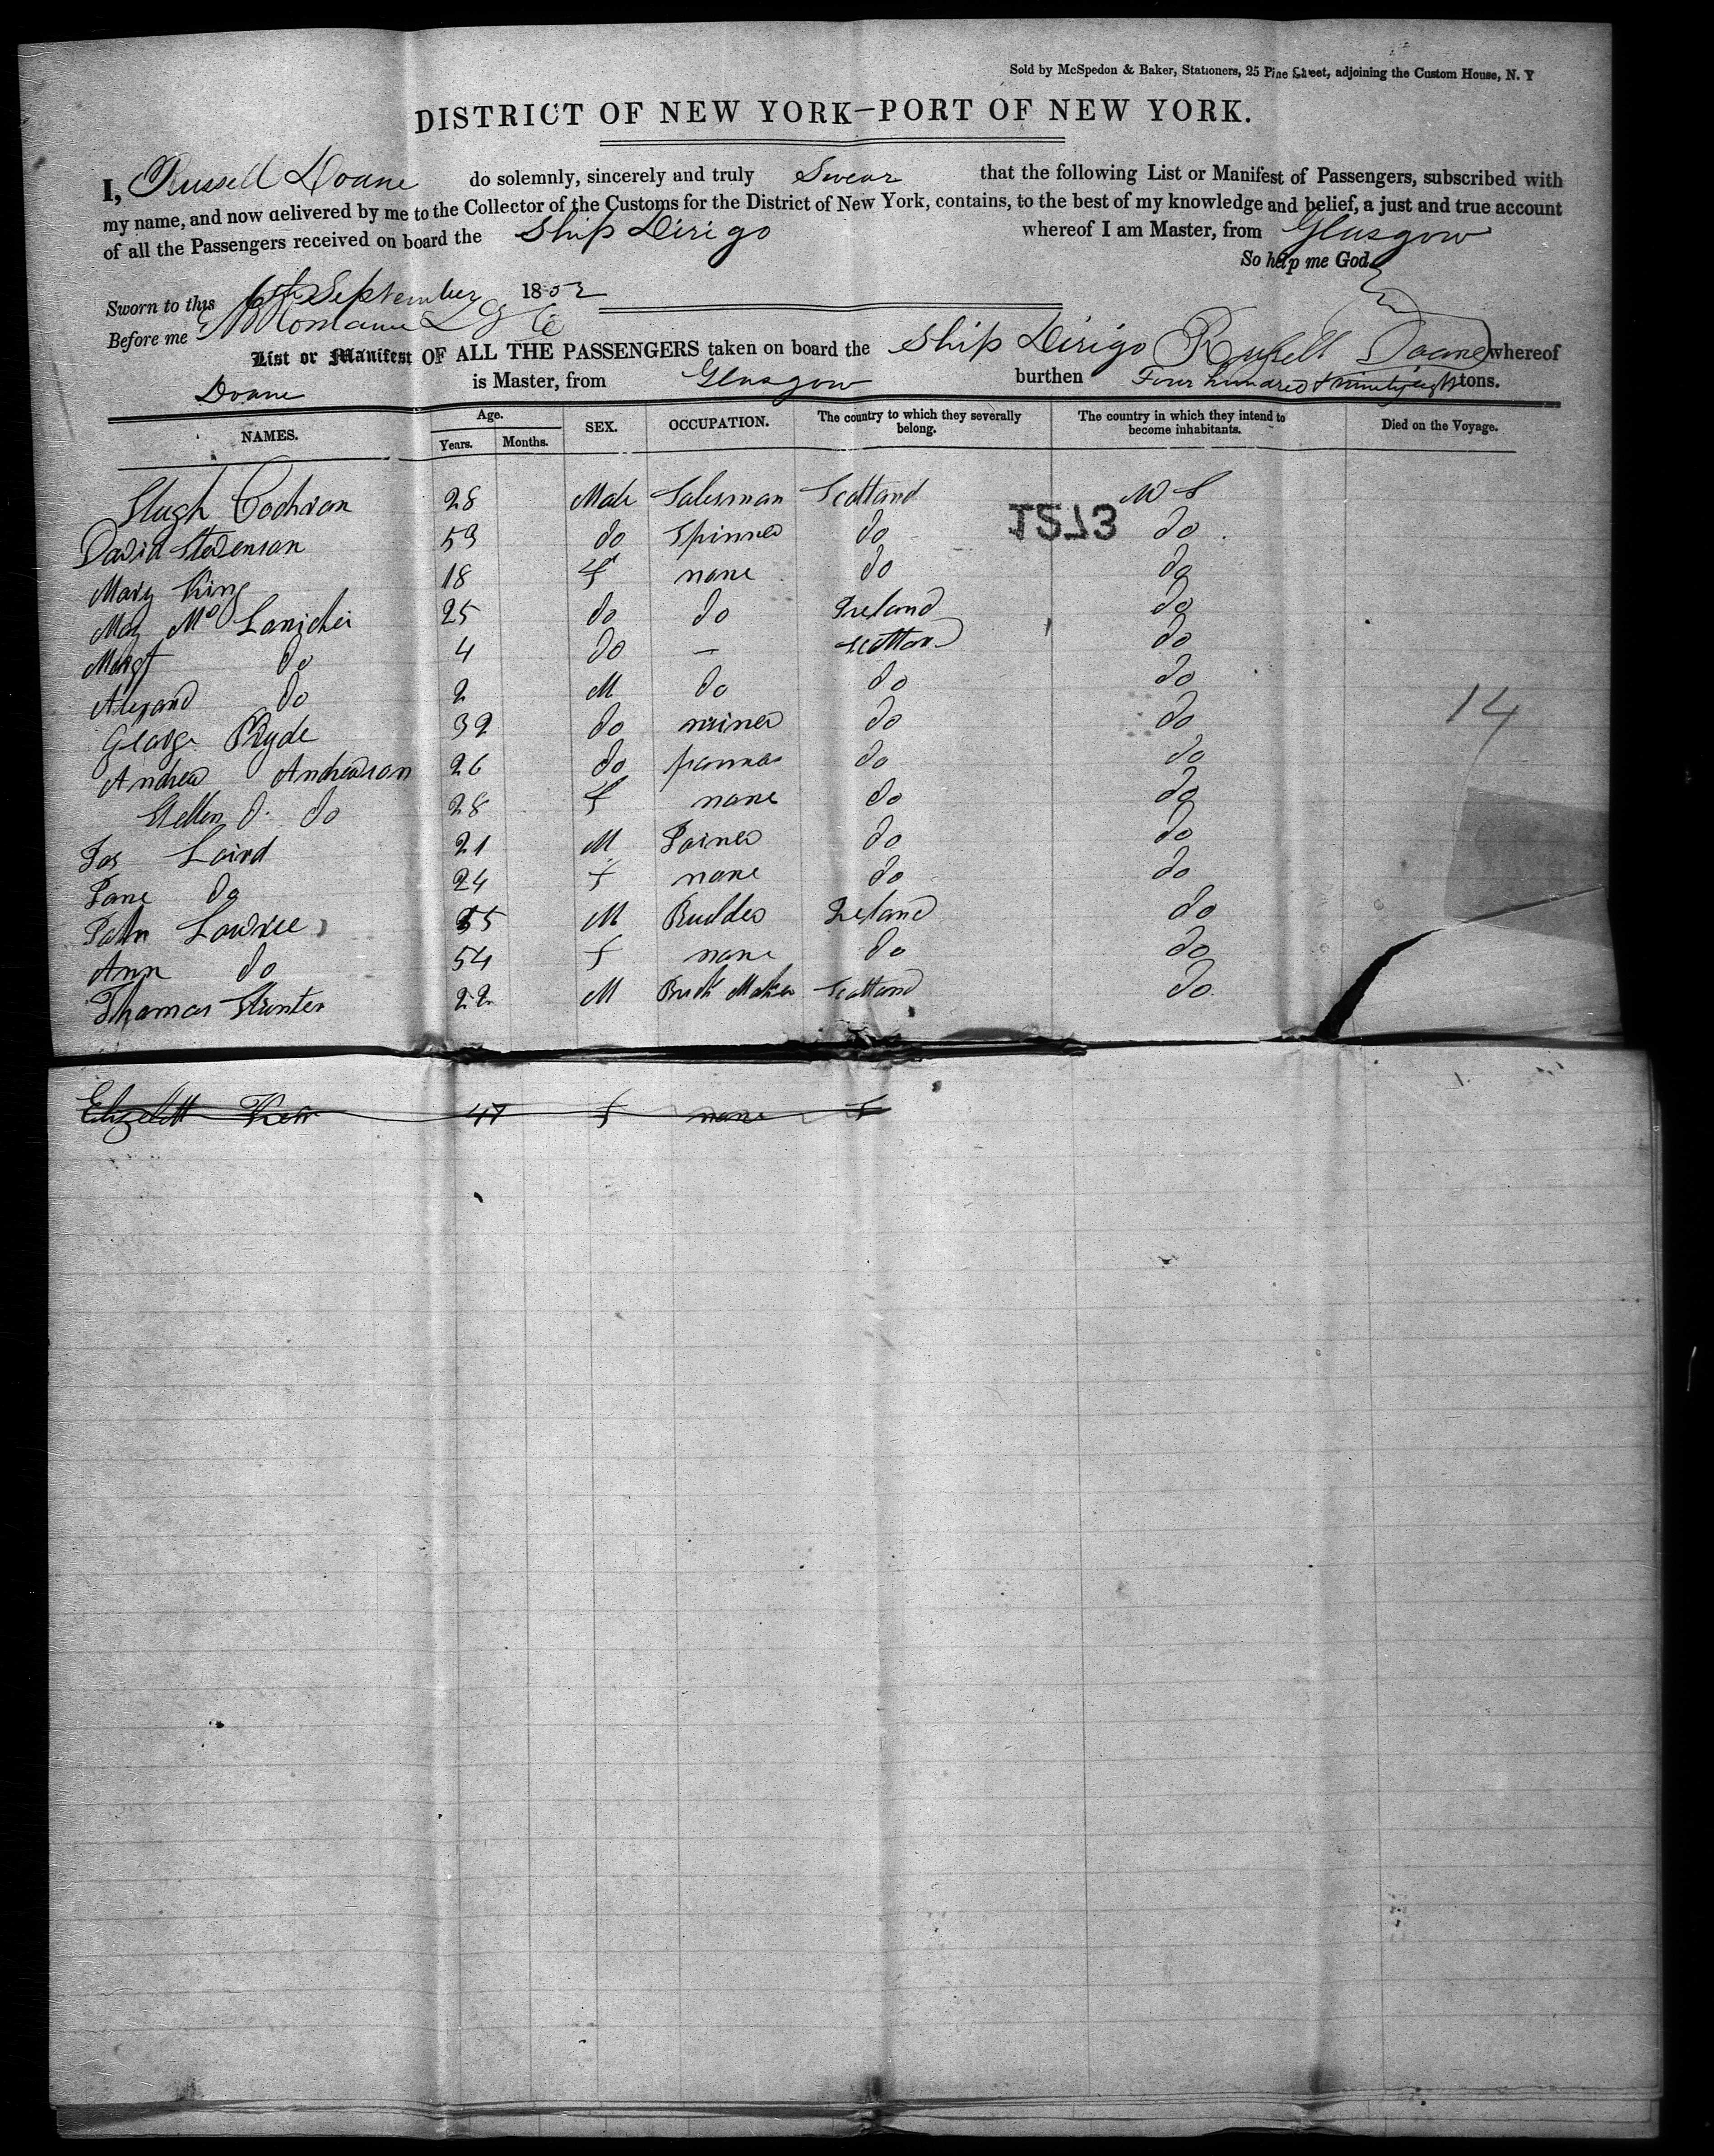 Sold by McSpedon & Baker, Stationers, 25 Pine Street, adjoining the Custom House, N. Y
DISTRICT OF NEW YORK—PORT OF NEW YORK.
I, Russell Doane do solemnly, sincerely and truly Swear that the following List or Manifest of Passengers, subscribed with
my name, and now delivered by me to the Collector of the Customs for the District of New York, contains, to the best of my knowledge and belief, a just and true account
of all the Passengers received on board the Ship Dirigo whereof I am Master, from Glasgow
So help me God.
Sworn to this 6th September 1852
Before me
List or Manifest OF ALL THE PASSENGERS taken on board the Ship Dirigo Russell Doane whereof
Doane is Master, from Glasgow burthen Four hundred & ninety eight tons.
NAMES. Age. Years. Months. SEX. OCCUPATION. The country to which they severally belong. The country in which they intend to become inhabitants. Died on the Voyage.
Hugh Cochran 28 Male Salesman Scotland U S
1273
David Stevenson 59 do Spinner do do
Mary King 18 f none do do
May Mc 25 do do Ireland do
Margt do 4 do — Scotland do
Alexand do 2 M do do do
George Ryde 32 do miner do do
Andrew Andrewson 26 do do do
Hellen D. do 28 f none do do
Jas Laird 21 M Joiner do do
Jane do 24 f none do do
John Lowree 55 M Builder Ireland do
Ann do 54 f none do do
Thomas Hunter 22 M Brick Maker Scotland do
14
Elizabett Kerr 47 f none